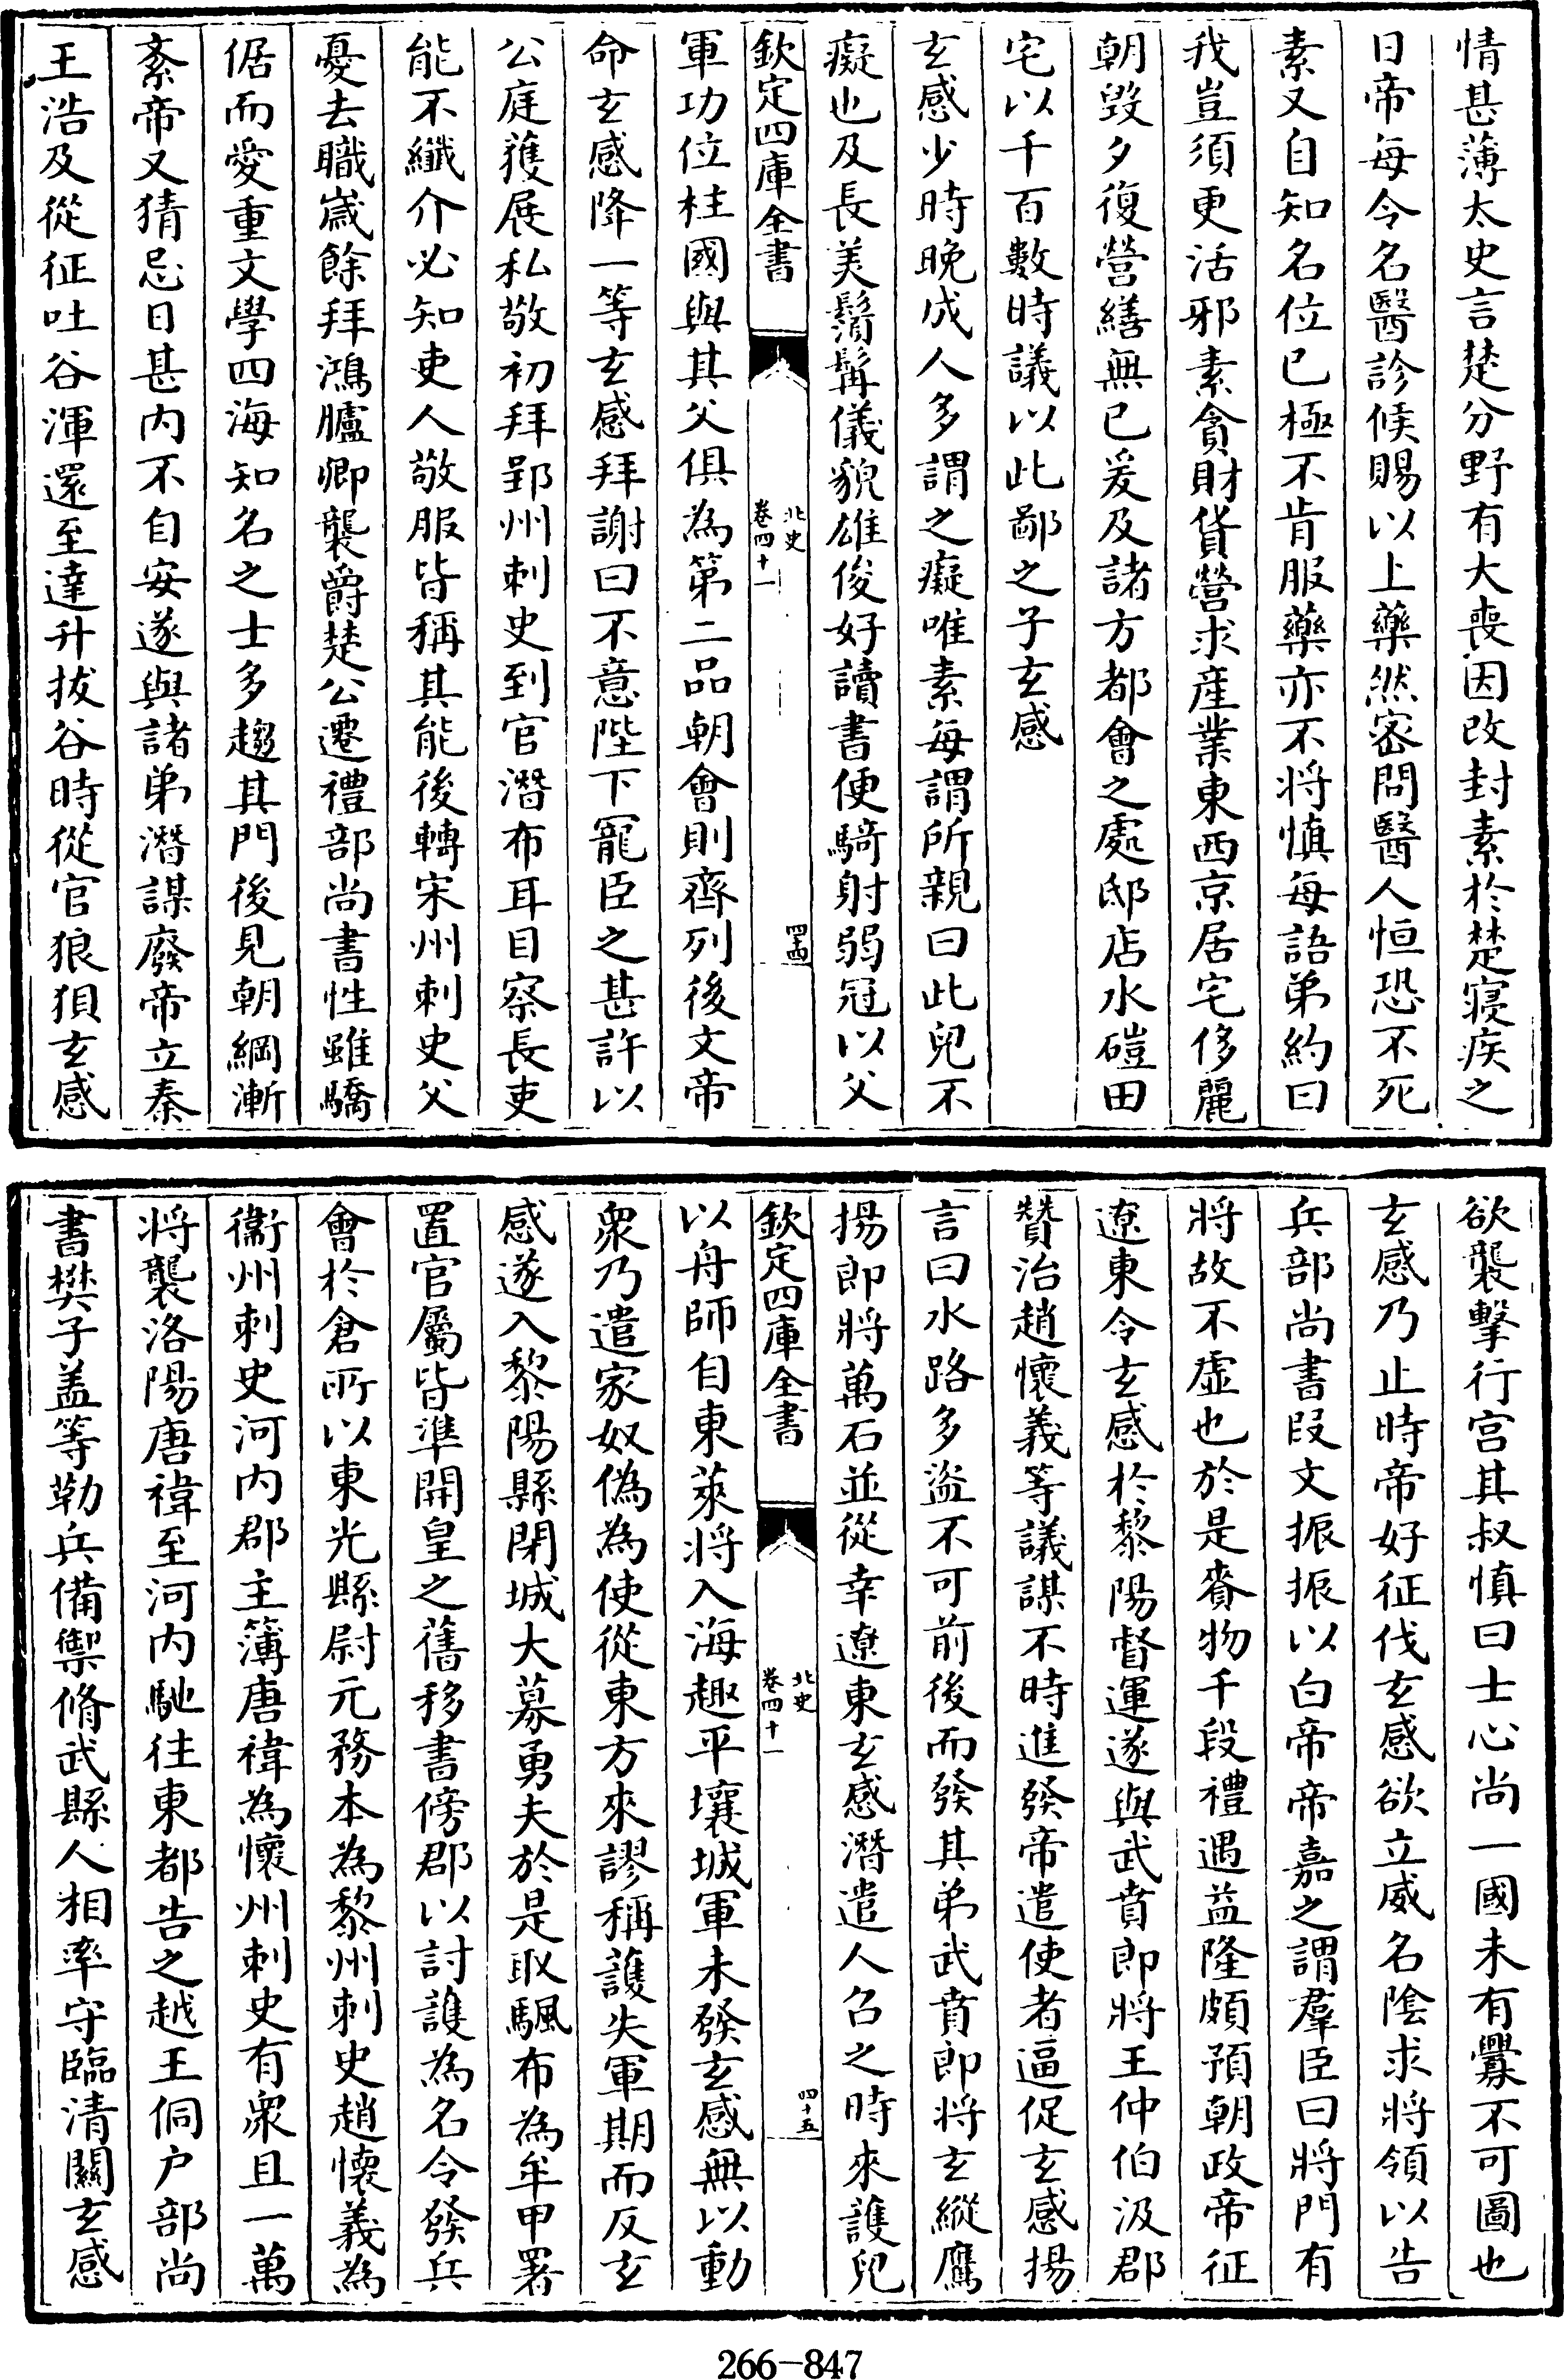 情甚薄太史言楚分野有大喪因改封素於楚寢疾之
日帝每令名醫診候賜以上藥然密問醫人恒恐不死
素又自知名位已極不肯服藥亦不將慎每語弟約曰
我豈須更活邪素貪財貨營求産業東西京居宅侈麗
朝毀夕復營繕無已爰及諸方都會之處邸店水磑田
宅以千百數時議以此鄙之子玄感
玄感少時晚成人多謂之癡唯素每謂所親曰此兒不
癡也及長美鬚髯儀貌雄俊好讀書便騎射弱冠以父
欽定四庫全書
北史
卷四十一
四十四
軍功位柱國與其父俱為第二品朝會則齊列後文帝
命玄感降一等玄感拜謝曰不意陛下寵臣之甚許以
公庭獲展私敬初拜郢州刺史到官潛布耳目察長吏
能不纖介必知吏人敬服皆稱其能後轉宋州刺史父
憂去職歲餘拜鴻臚卿襲爵楚公遷禮部尚書性雖驕
倨而愛重文學四海知名之士多趨其門後見朝綱漸
紊帝又猜忌日甚内不自安遂與諸弟潛謀廢帝立秦
王浩及從征吐谷渾還至達升拔谷時從官狼狽玄感
欲襲擊行宫其叔慎曰士心尚一國未有釁不可圖也
玄感乃止時帝好征伐玄感欲立威名陰求將領以告
兵部尚書段文振振以白帝帝嘉之謂羣臣曰將門有
將故不虛也於是賚物千段禮遇益隆頗預朝政帝征
遼東令玄感於黎陽督運遂與武賁郎將王仲伯汲郡
贊治趙懷義等議謀不時進發帝遣使者逼促玄感揚
言曰水路多盜不可前後而發其弟武賁郎將玄縱鷹
揚郎將萬石並從幸遼東玄感潛遣人召之時來護兒
欽定四庫全書
北史
卷四十一
四十五
以舟師自東萊將入海趣平壤城軍未發玄感無以動
衆乃遣家奴偽為使從東方來謬稱護失軍期而反玄
感遂入黎陽縣閉城大募勇夫於是取颿布為牟甲署
置官屬皆準開皇之舊移書傍郡以討護為名令發兵
會於倉所以東光縣尉元務本為黎州刺史趙懷義為
衞州刺史河内郡主簿唐禕為懷州刺史有衆且一萬
將襲洛陽唐禕至河内馳往東都告之越王侗户部尚
書樊子盖等勒兵備禦脩武縣人相率守臨清關玄感
266-847